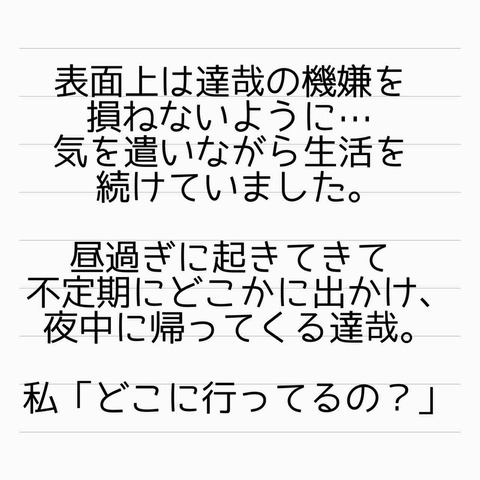 表面上は達哉の機嫌を
損ねないように…
気を遣いながら生活を
続けていました。
昼過ぎに起きてきて
不定期にどこかに出かけ、
夜中に帰ってくる達哉。
私「どこに行ってるの？」